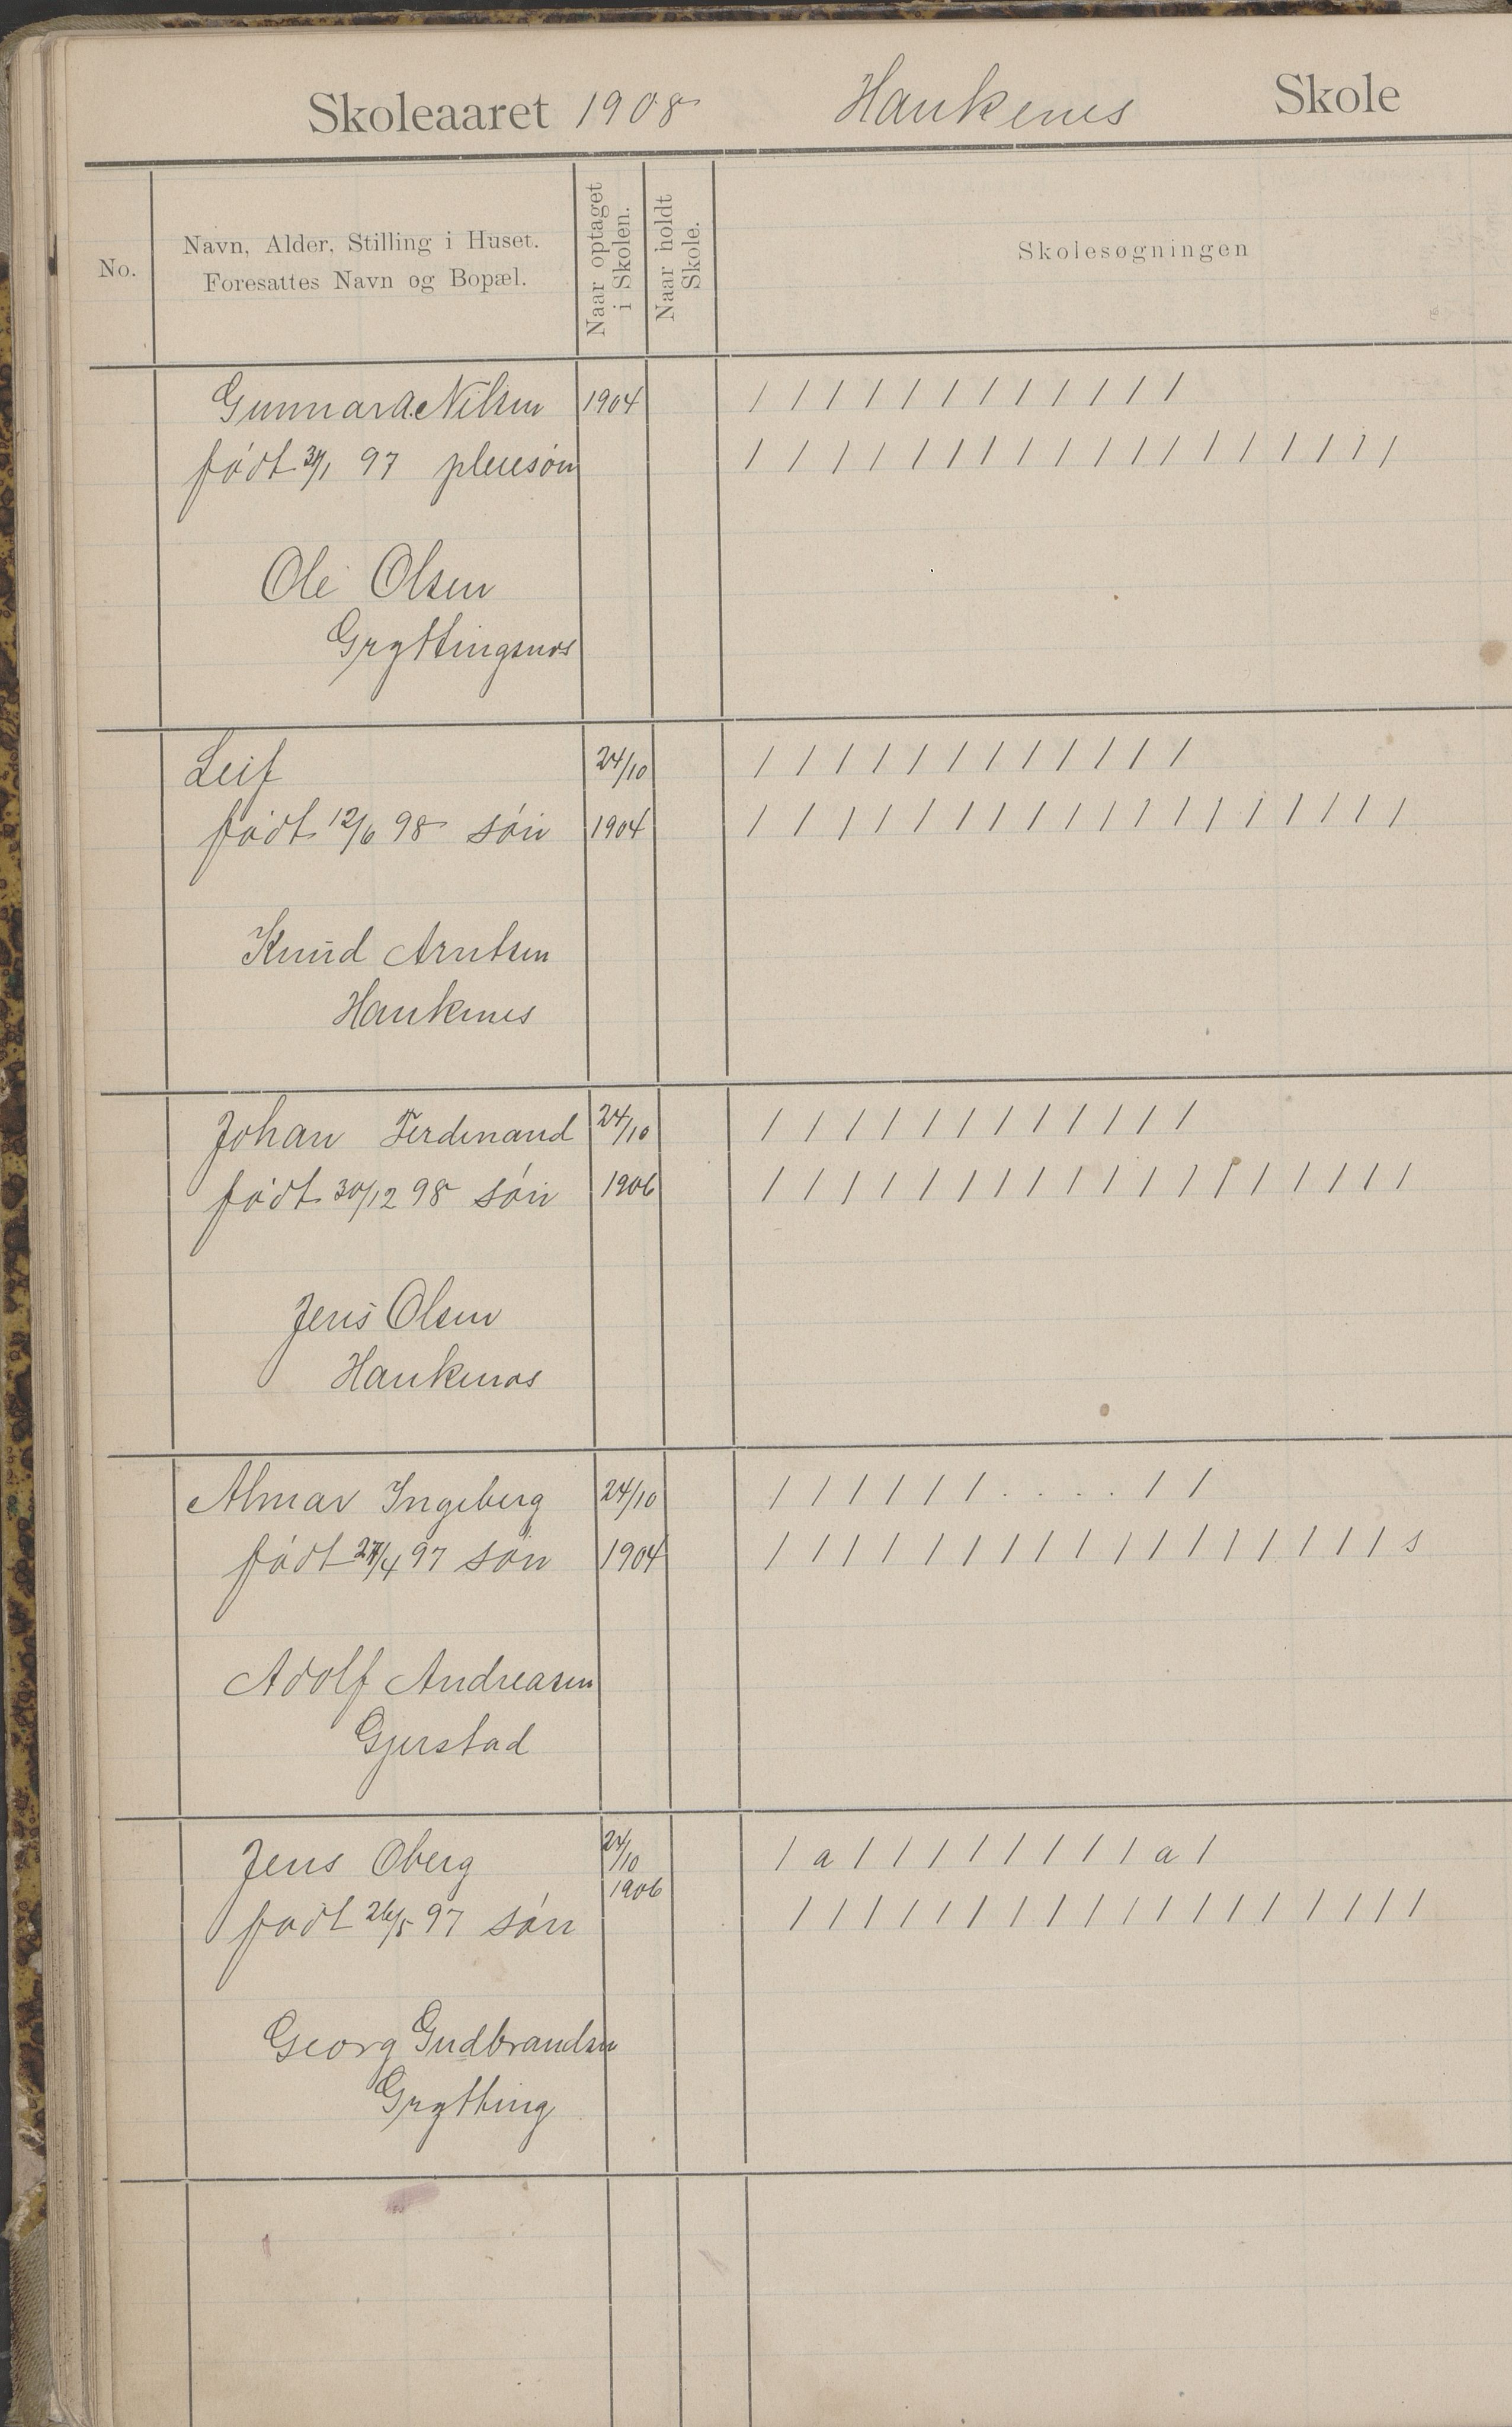 Skoleaaret 1908 Haukenes Skole
No.
Navn, Alder, Stilling i Huset.
Foresattes Navn og Bopæl.
Naar optaget
i Skolen.
Naar holdt
Skole.
Skolesøgningen
Gunnar A. Nilsen 1904 / / / / / / / / / / / /
født 31/1 97 pleiesøn / / / / / / / / / / / / / / / / / /
Ole Olsen
Gryttingsnes
Leif 24/10 / / / / / / / / / / / /
født 12/6 98 søn 1904 / / / / / / / / / / / / / / / / / /
Knud Arntsen
Haukenes
Johan Ferdinand 24/10 / / / / / / / / / / / /
født 30/12 98 søn 1906 / / / / / / / / / / / / / / / / / /
Jens Olsen
Haukenes
Almar Ingeberg 24/10 / / / / / / . . . . / /
født 27/4 97 søn 1904 / / / / / / / / / / / / / / / / / s
Adolf Andreasen
Gjerstad
Jens Oberg 24/10 / a / / / / / / / / a /
1906
født 26/5 97 søn / / / / / / / / / / / / / / / / / /
Georg Gudbrandsen
Grytting